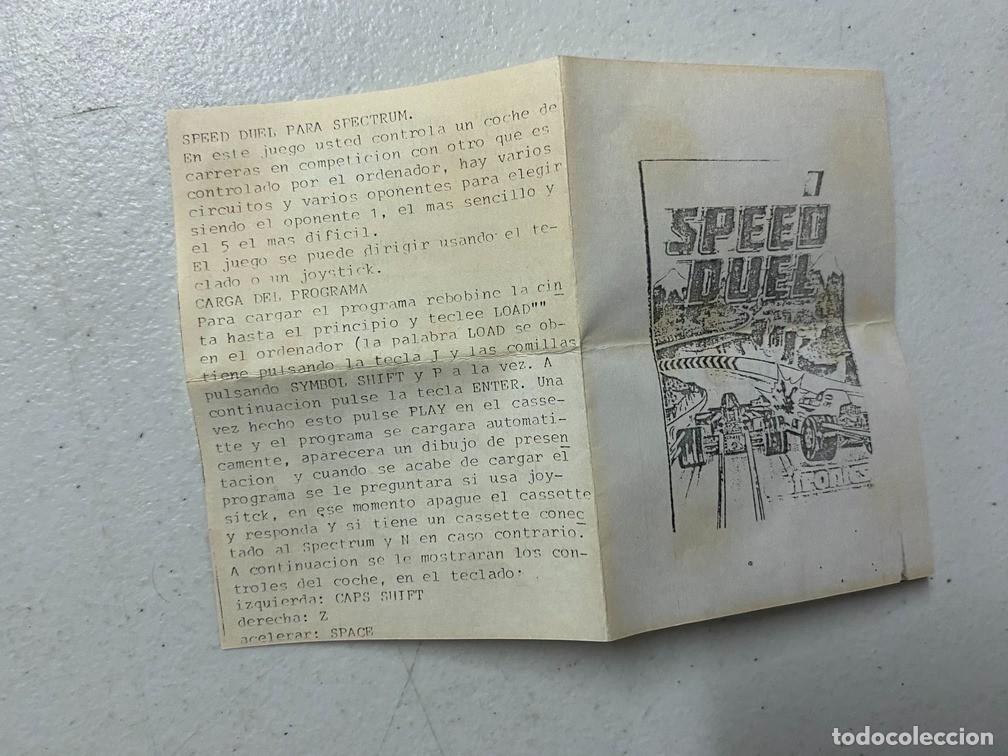 SPEED DUEL PARA SPECTRUM.
En este juego usted controla un coche de
carreras en competicion con otro que es
controlado por el ordenador, hay varios
circuitos y varios oponentes para elegir
siendo el oponente 1, el mas sencillo y
el 5 el mas dificil.
El juego se puede dirigir usando el te-
clado o un joystick.
CARGA DEL PROGRAMA
Para cargar el programa rebobine la cin
ta hasta el principio y teclee LOAD""
en el ordenador (la palabra LOAD se ob-
tiene pulsando la tecla J y las comillas
pulsando SYMBOL SHIFT y P a la vez. A
continuacion pulse la tecla ENTER. Una
vez hecho esto pulse PLAY en el casse-
tte y el programa se cargara automati-
camente, aparecera un dibujo de presen
tacion y cuando se acabe de cargar el
programa se le preguntara si usa joy-
sitck, en ese momento apague el cassette
y responda Y si tiene un cassette conec
tado al Spectrum y N en caso contrario.
A continuacion se le mostraran los con-
troles del coche, en el teclado:
izquierda: CAPS SHIFT
derecha: Z
acelerar: SPACE
SPEED
DUEL
tronics
todocoleccion